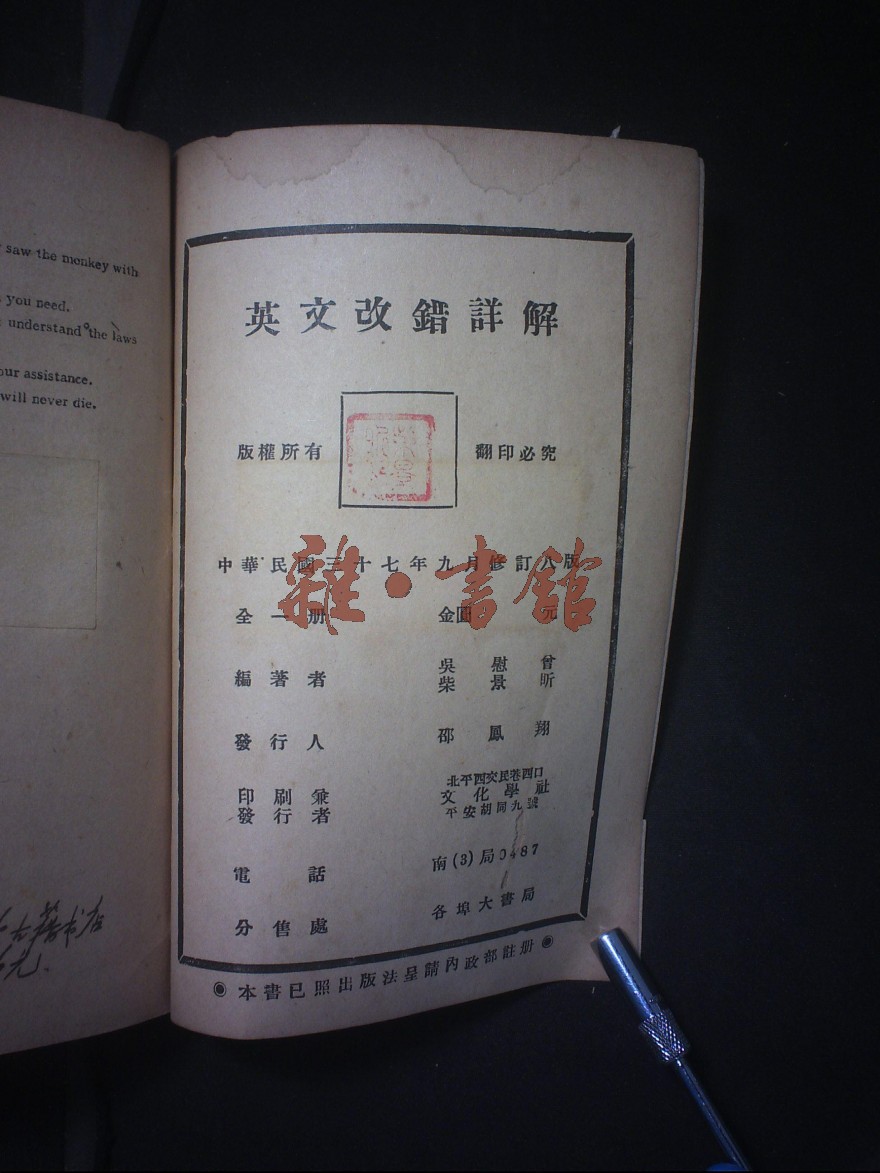 saw the monkey with
you need.
understand the laws
our assistance.
will never die.
英文改錯詳解
版權所有
翻印必究
中華民國三十七年九月修訂八版
雜·書館
全一册 金圓 元
編著者 吳慰曾
柴景昕
發行人 邵鳳翔
北平西交民巷西口
印刷兼 文化學社
發行者 平安胡同九號
電話 南(3)局0487
分售處 各埠大書局
◉本書已照出版法呈請內政部註册◉